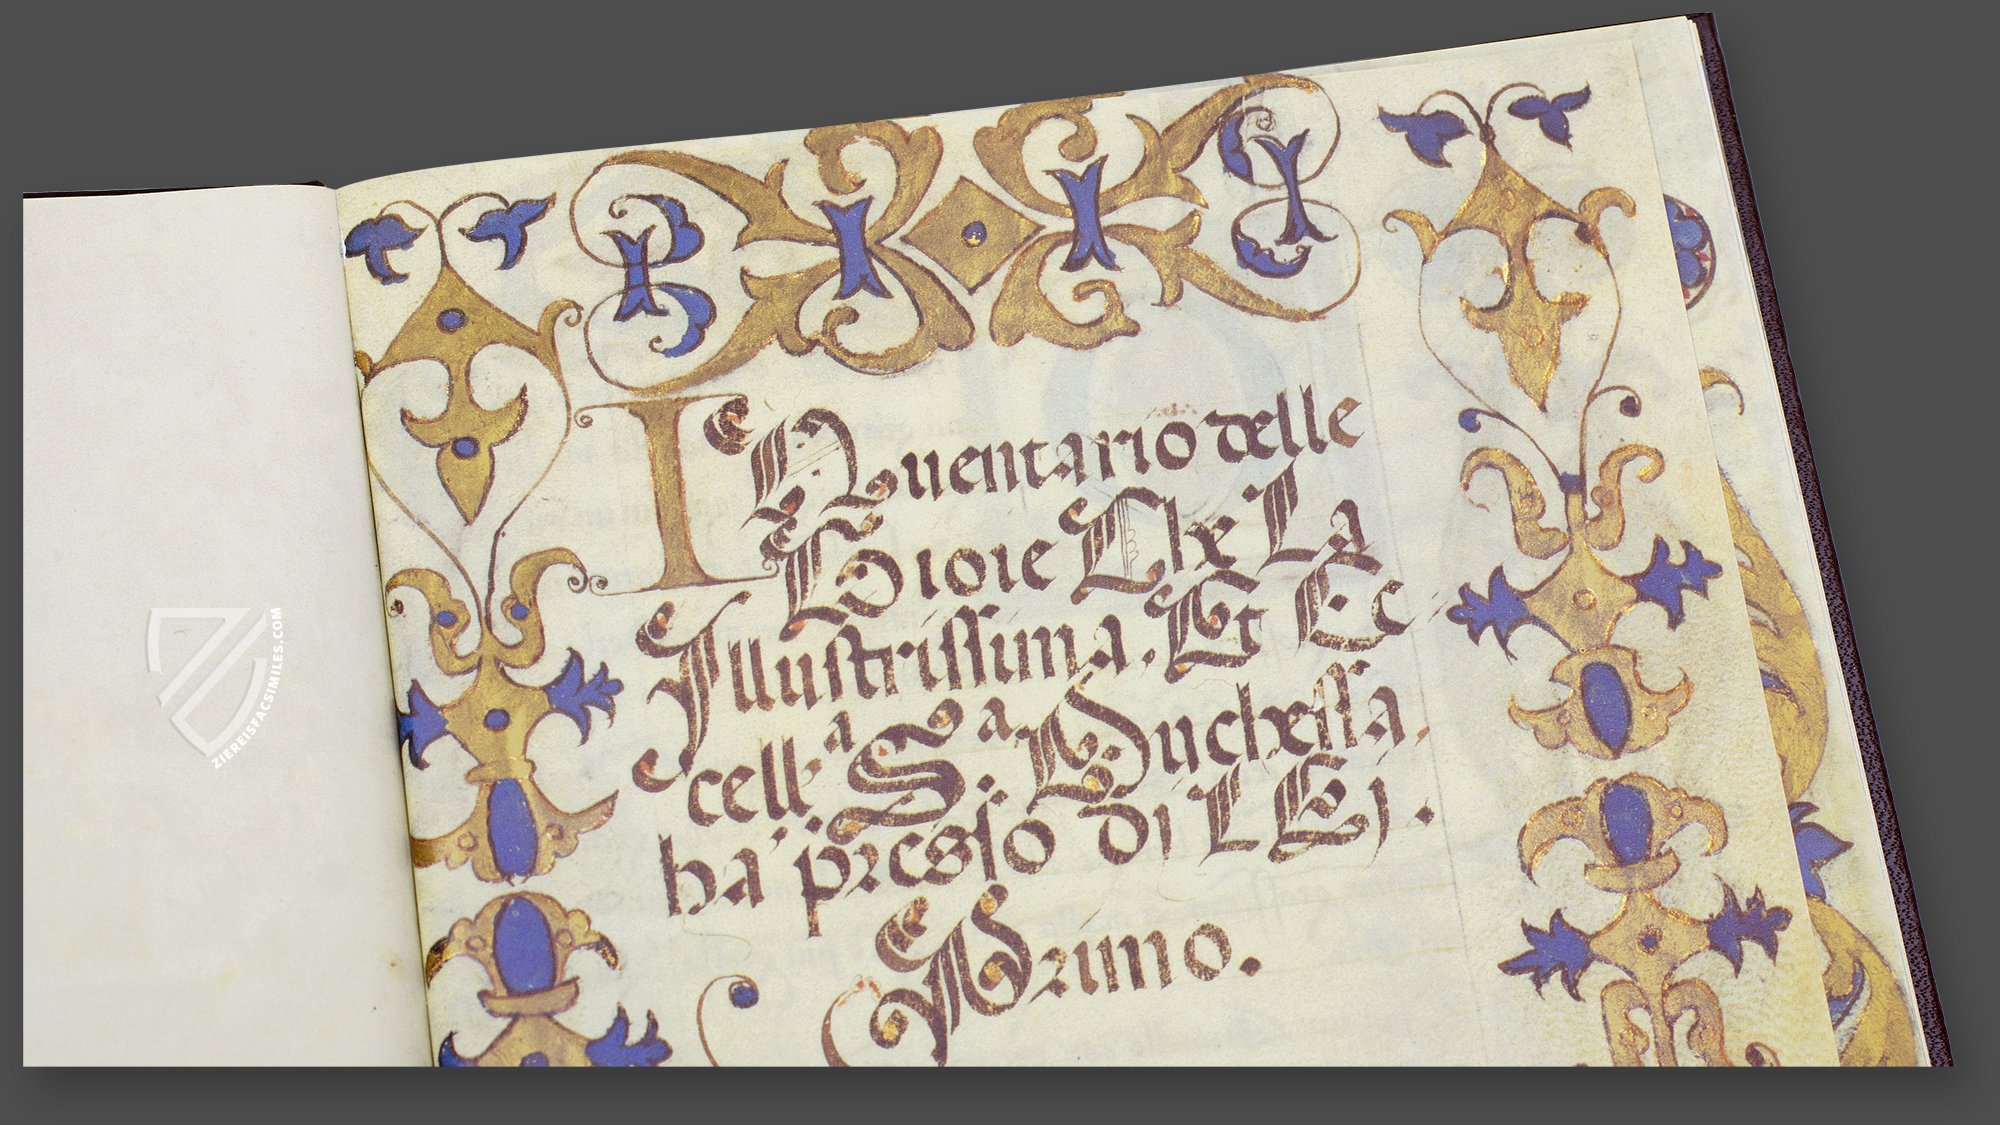 INuentario delle
Gioie Che La
Illustrissima. Et Ec
cell.ᵃ S.ᵃ Duchessa,
ha' presso di LEj.
Primo.
ZIEREISFACSIMILES.COM